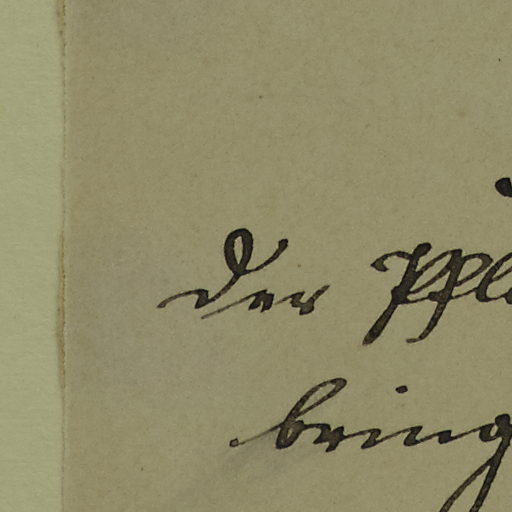 der Pfl
bring